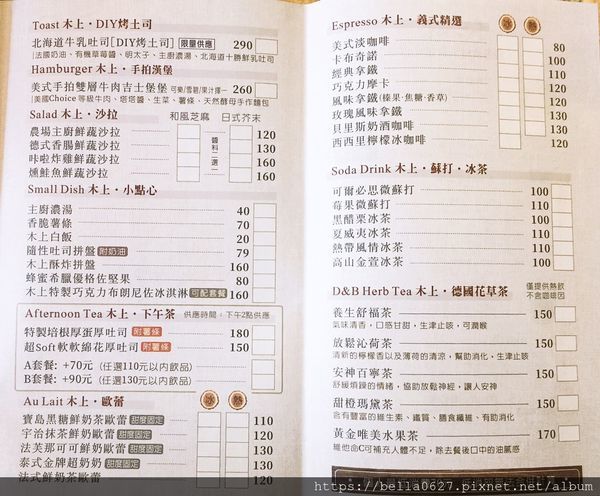 Toast 木上·DIY烤土司
北海道牛乳吐司[DIY烤土司] 限量供應 290
|法國奶油、有機草莓醬、明太子、主廚濃湯、北海道十勝鮮乳吐司
Hamburger 木上·手拍漢堡
美式手拍雙層牛肉吉士堡堡 可樂/雪碧/果汁擇一 260
|美國Choice等級牛肉、塔塔醬、生菜、薯條、天然酵母手作麵包
Salad 木上·沙拉 和風芝麻 日式芥末
農場主廚鮮蔬沙拉 120
德式香腸鮮蔬沙拉 130
咔啦炸雞鮮蔬沙拉 160
燻鮭魚鮮蔬沙拉 160
醬料二選一
Small Dish 木上·小點心
主廚濃湯 40
香脆薯條 70
木上白飯 20
隨性吐司拼盤 附奶油 79
木上酥炸拼盤 160
蜂蜜希臘優格佐堅果 80
木上特製巧克力布朗尼佐冰淇淋 可配套餐 160
Afternoon Tea 木上·下午茶 供應時間：下午2點供應
特製培根厚蛋厚吐司 附薯條 180
超Soft軟軟綿花厚吐司 附薯條 150
A套餐: +70元 (任選110元以內飲品)
B套餐: +90元 (任選130元以內飲品)
Au Lait 木上·歐蕾 冰 熱
寶島黑糖鮮奶茶歐蕾 甜度固定 110
宇治抹茶鮮奶歐蕾 甜度固定 120
法芙那可可鮮奶歐蕾 甜度固定 130
泰式金牌超奶奶 甜度固定 130
法式鮮奶茶歐蕾 120
Espresso 木上·義式精選 冰 熱
美式淡咖啡 80
卡布奇諾 100
經典拿鐵 110
巧克力摩卡 120
風味拿鐵 (榛果·焦糖·香草) 120
玫瑰風味拿鐵 130
貝里斯奶酒咖啡 130
西西里檸檬冰咖啡 130
Soda Drink 木上·蘇打·冰茶
可爾必思微蘇打 100
莓果微蘇打 110
黑醋栗冰茶 100
夏威夷冰茶 110
熱帶風情冰茶 110
高山金萱冰茶 100
D&B Herb Tea 木上·德國花草茶 僅提供熱飲
不含咖啡因
養生舒福茶 150
氣味清香，口感甘甜，生津止咳，可潤喉
放鬆沁荷茶 150
清新的檸檬香以及薄荷的清涼，幫助消化，生津止咳
安神百寧茶 150
舒緩煩躁的情緒，協助放鬆神經，讓人安神
甜橙瑪黛茶 150
含有豐富的維生素、鐵質、膳食纖維、有助消化
黃金唯美水果茶 170
維他命C可補充人體不足，除去餐後口中的油膩感
https://bella0627.pixnet.net/album